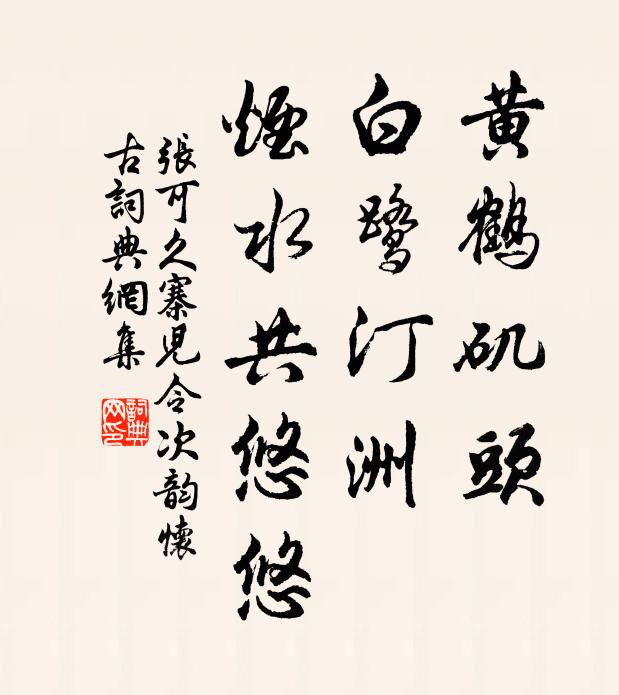 黄鶴矶頭
白鹭汀洲
煙水共悠悠
張可久寨児令次韵懷
古詞典網集
詞典網印